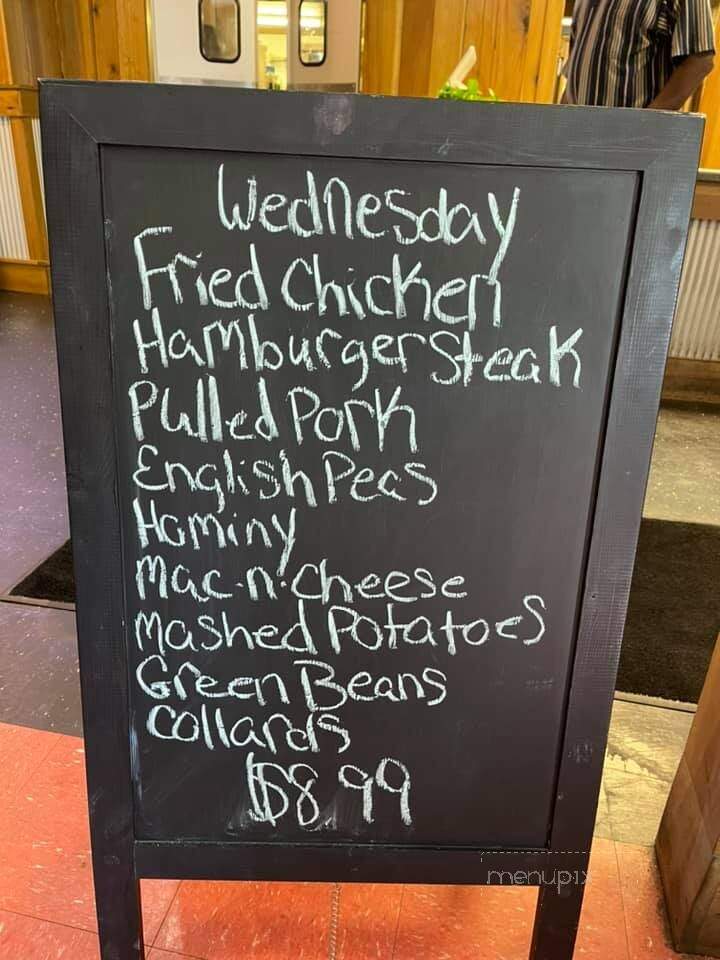 Wednesday
Fried Chicken
Hamburger Steak
Pulled Pork
English Peas
Hominy
Mac-n-cheese
Mashed Potatoes
Green Beans
Collards
$8.99
menupix